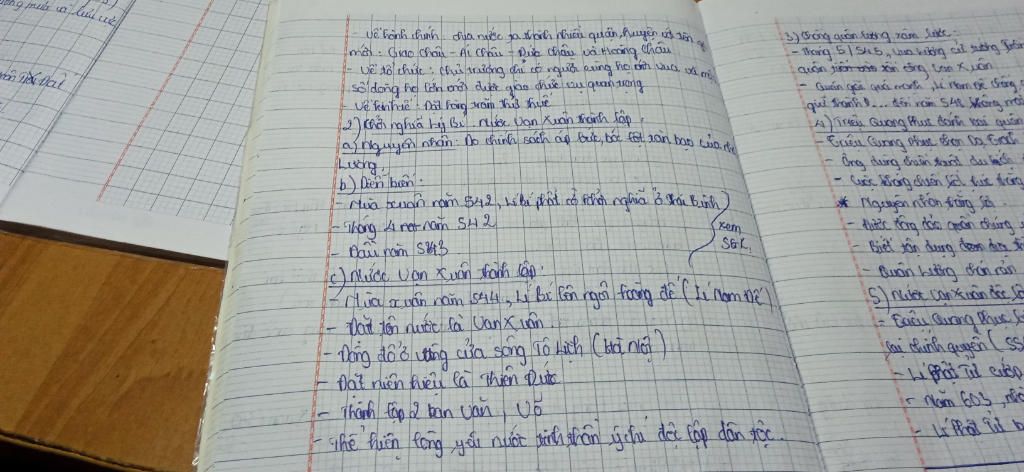 - Về hành chính: chia nước ta thành nhiều quận, huyện với tên gọi
mới: Giao Châu - Ái Châu - Đức Châu và Hoàng Châu
- Về tổ chức: chủ trương chỉ có người cùng họ với vua và một
số dòng họ lớn mới được giao chức vụ quan trọng
- Về thuế: Đặt hàng trăm thứ thuế
2) Khởi nghĩa Lý Bí. Nước Vạn Xuân thành lập.
a) Nguyên nhân: Do chính sách áp bức, bóc lột tàn bạo của nhà
Lương.
b) Diễn biến:
- Mùa xuân năm 542, Lí Bí phất cờ khởi nghĩa ở Thái Bình
- Tháng 4 năm 542
- Đầu năm 543
xem
SGK.
c) Nước Vạn Xuân thành lập.
- Mùa xuân năm 544, Lí Bí lên ngôi hoàng đế (Lí Nam Đế)
- Đặt tên nước là Vạn Xuân.
- Đóng đô ở vùng cửa sông Tô Lịch (Hà Nội)
- Đặt niên hiệu là Thiên Đức
- Thành lập 2 ban văn, võ
- Thể hiện lòng yêu nước tinh thần ý chí độc lập dân tộc.
3) Chống quân Lương xâm lược:
- Tháng 5/545, vua Lương cử tướng
quân tấn công Vạn Xuân
- Quân giặc quá mạnh, Lí Nam Đế
đến năm 548
4) Triệu Quang Phục đánh bại quân
- Triệu Quang Phục chọn Dạ Trạch
- Ông dùng chiến thuật du kích
- Cuộc kháng chiến kết thúc thắng
* Nguyên nhân thắng lợi
- Được đông đảo quần chúng
- Biết tận dụng
- Quân Lương chán nản
5) Nước Vạn Xuân độc lập
- Triệu Quang Phục
lại chính quyền (
- Lí Phật Tử cướp
- Năm 603,
- Lí Phật Tử